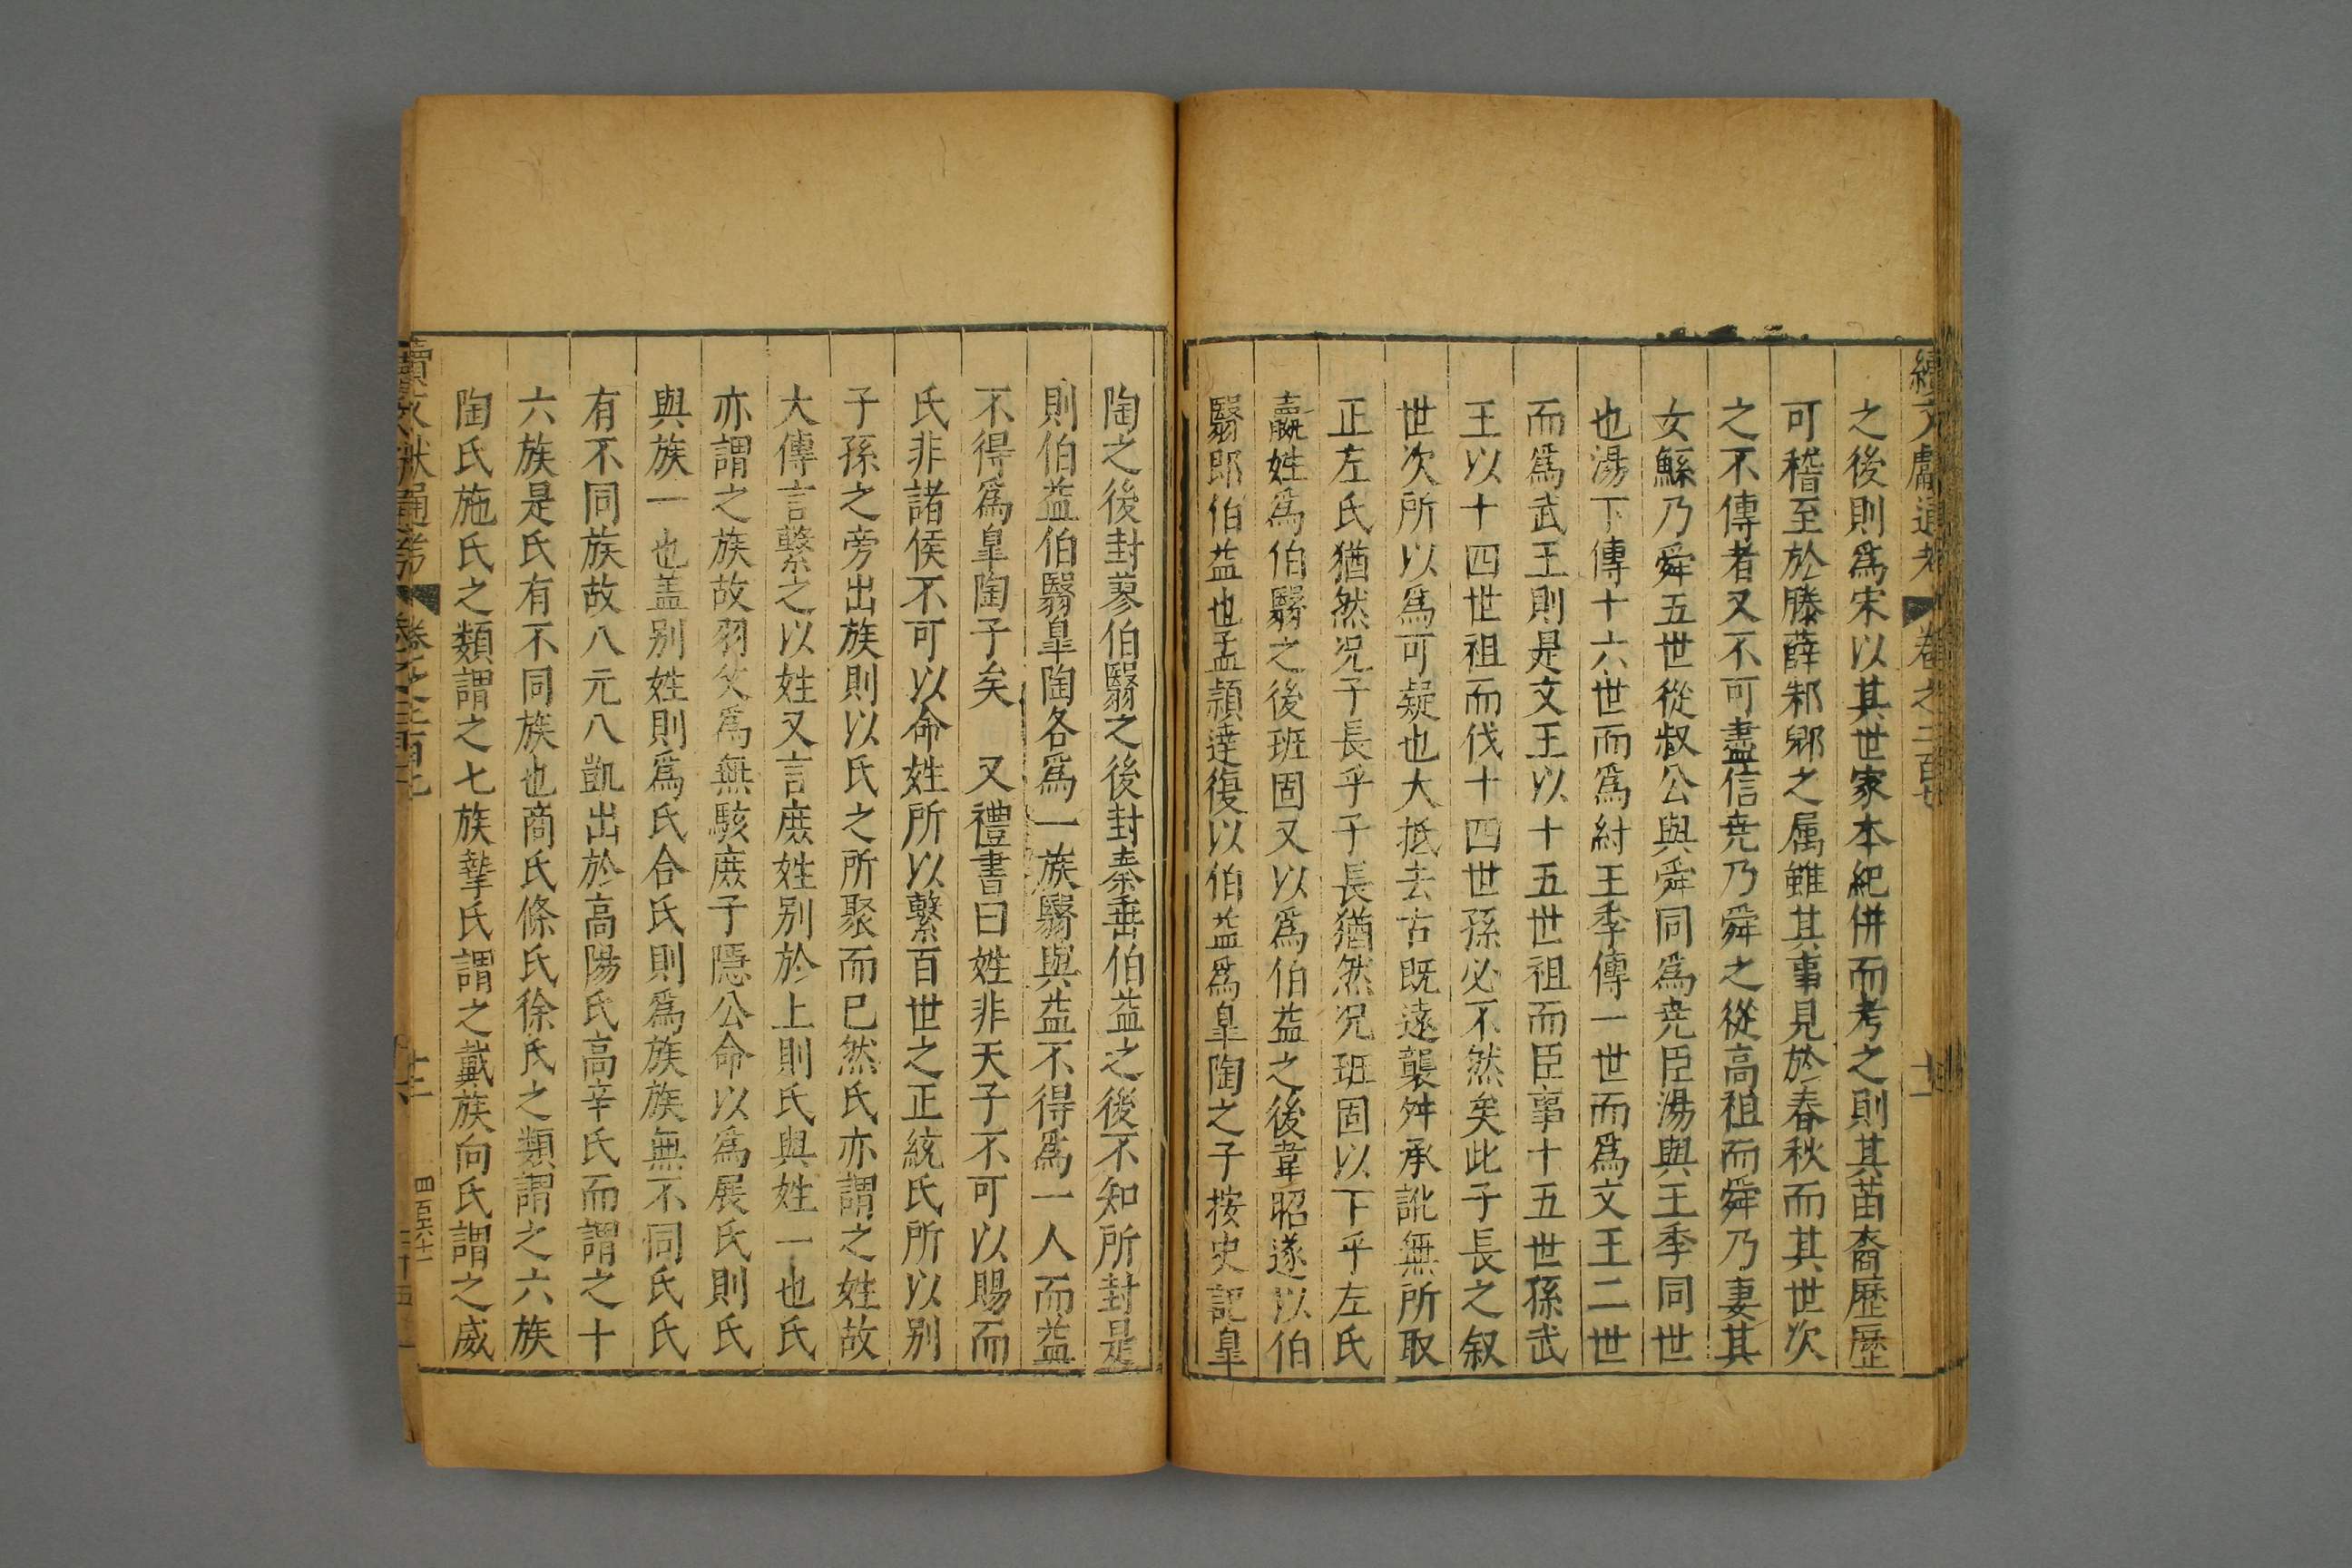 續文獻通考 卷之二百七 十一
之後則爲宋以其世家本紀併而考之則其苗裔歷歷
可稽至於滕薛邾郳之属雖其事見於春秋而其世次
之不傳者又不可盡信尭乃舜之從高祖而舜乃妻其
女鯀乃舜五世從叔公與舜同爲尭臣湯與王季同世
也湯下傳十六世而爲紂王季傳一世而爲文王二世
而爲武王則是文王以十五世祖而臣事十五世孫武
王以十四世祖而伐十四世孫必不然矣此子長之叙
世次所以爲可疑也大抵去古既遠襲舛承訛無所取
正左氏猶然况子長乎子長猶然况班固以下乎左氏
嬴姓爲伯翳之後班固又以爲伯益之後韋昭遂以伯
翳即伯益也孟頴達復以伯益爲臯陶之子按史記臯
陶之後封蓼伯翳之後封秦垂伯益之後不知所封是
則伯益伯翳臯陶各爲一族翳與益不得爲一人而益
不得爲臯陶子矣 又禮書曰姓非天子不可以賜而
氏非諸侯不可以命姓所以繫百世之正統氏所以别
子孫之旁出族則以氏之所聚而已然氏亦謂之姓故
大傳言繫之以姓又言庶姓别於上則氏與姓一也氏
亦謂之族故羽父爲無駭庶子隱公命以爲展氏則氏
與族一也盖别姓則爲氏合氏則爲族族無不同氏氏
有不同族故八元八凱出於高陽氏高辛氏而謂之十
六族是氏有不同族也商氏條氏徐氏之類謂之六族
陶氏施氏之類謂之七族摯氏謂之戴族向氏謂之威
續文獻通考 卷之二百七 十二